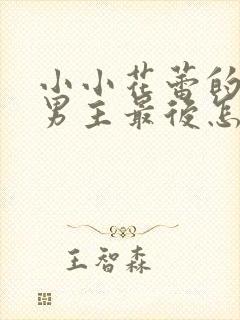 小小花蕾的
男主最后怎
王智森